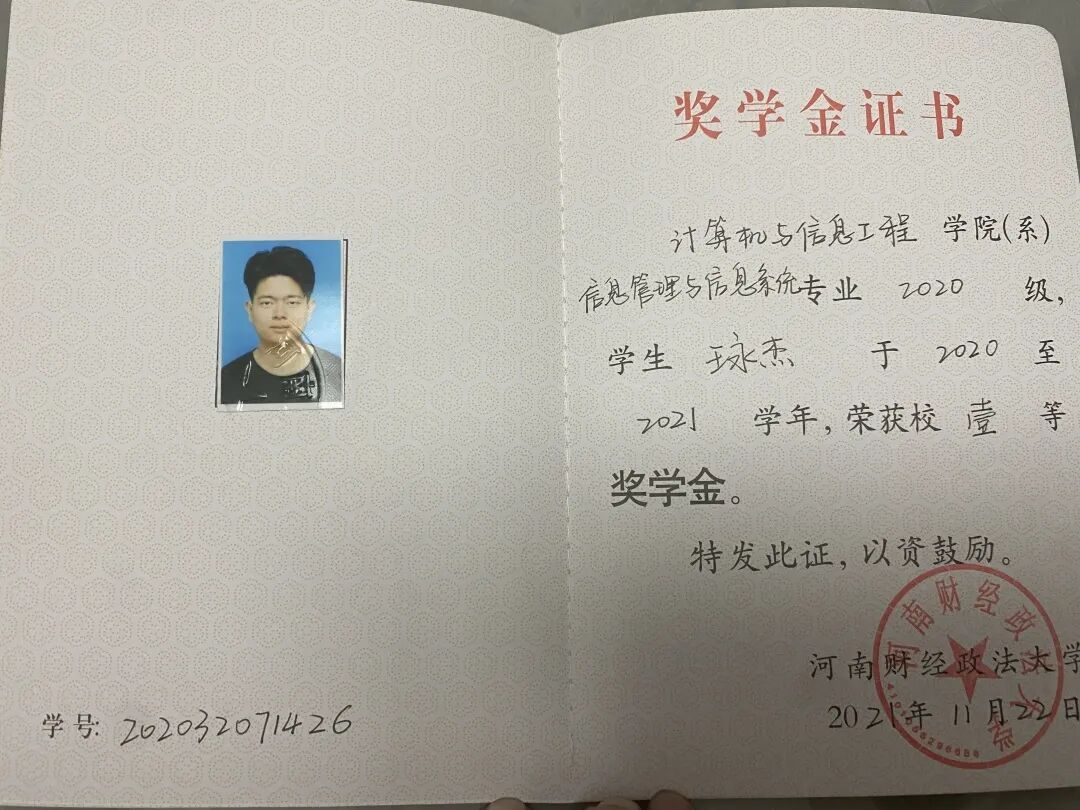 奖学金证书
计算机与信息工程 学院(系)
信息管理与信息系统专业 2020 级,
学生 王永杰 于 2020 至
2021 学年,荣获校 壹 等
奖学金。
特发此证,以资鼓励。
河南财经政法大学
2021年 11月22日
河南财经政法大学
学号: 202032071426